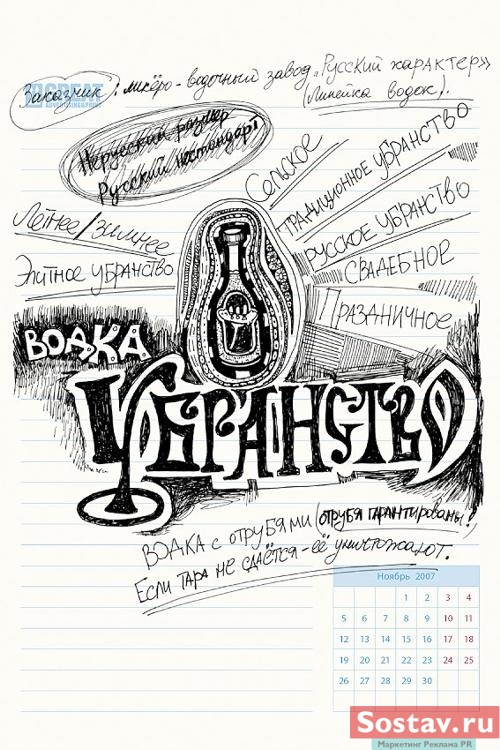 Заказчик: ликёро-водочный завод „Русский характер"
(Линейка водок).
GREAT
Нерусский размер
Русский нестандарт
Сельское
традиционное убранство
русское убранство
Свадебное
Праздничное
Летнее/зимнее
Элитное убранство
ВОДКА
УБРАНСТВО
Водка с отрубями /отрубя гарантированы!
Если тара не сдаётся - её уничтожают.
Ноябрь 2007
1 2 3 4
5 6 7 8 9 10 11
12 13 14 15 16 17 18
19 20 21 22 23 24 25
26 27 28 29 30
Sostav.ru
Маркетинг Реклама PR